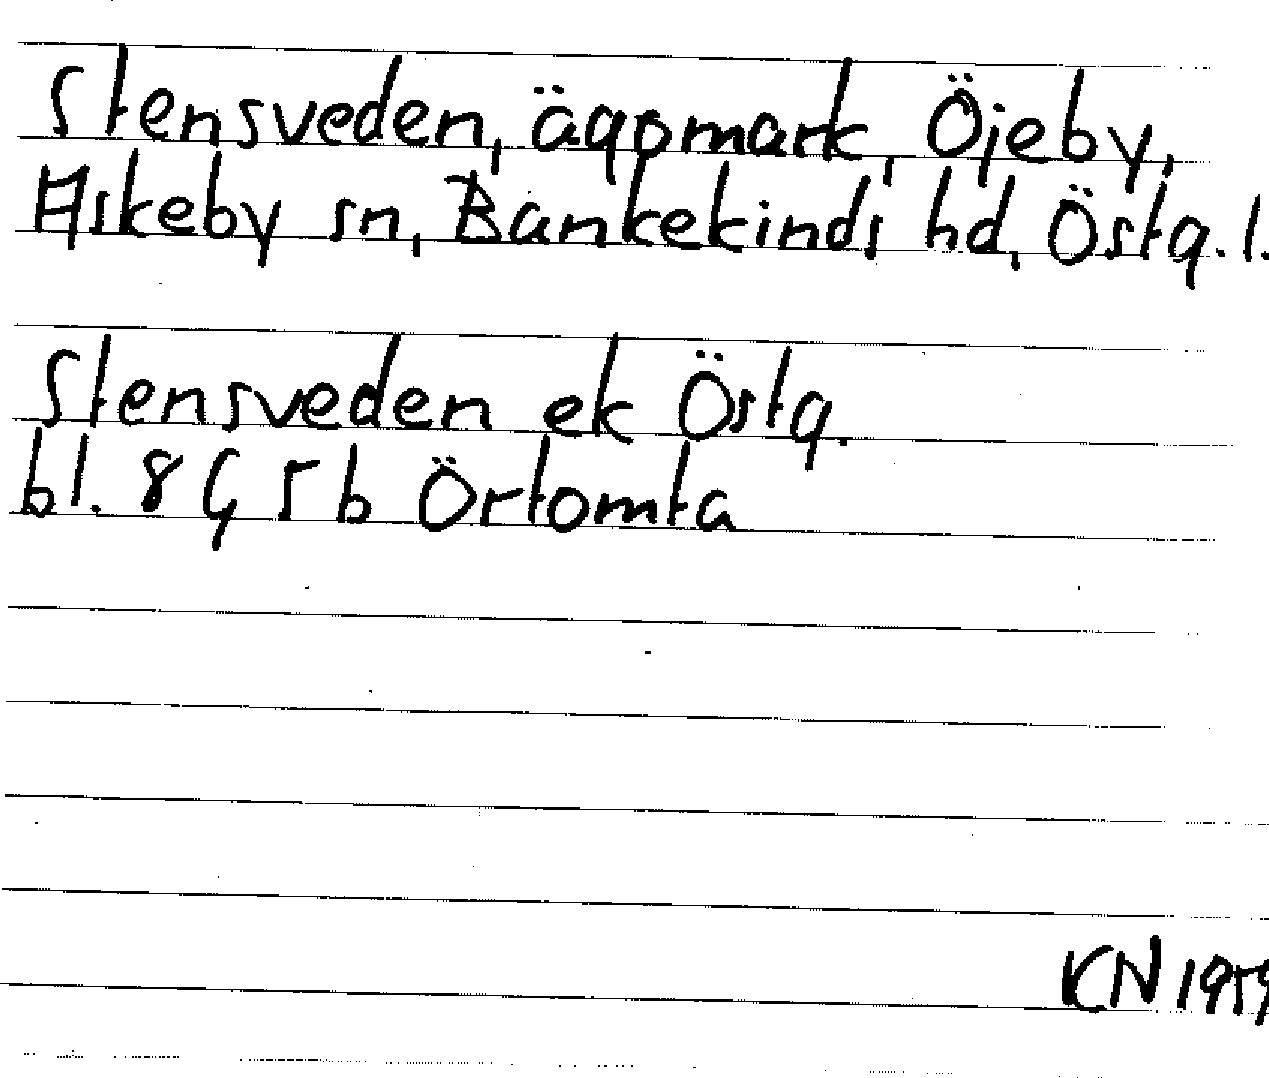 Stensveden, ägomark, Öjeby,
Askeby sn, Bankekinds hd, Östg. l.
Stensveden ek Östg.
bl. 8 G 5 b Örtomta
KN 1959